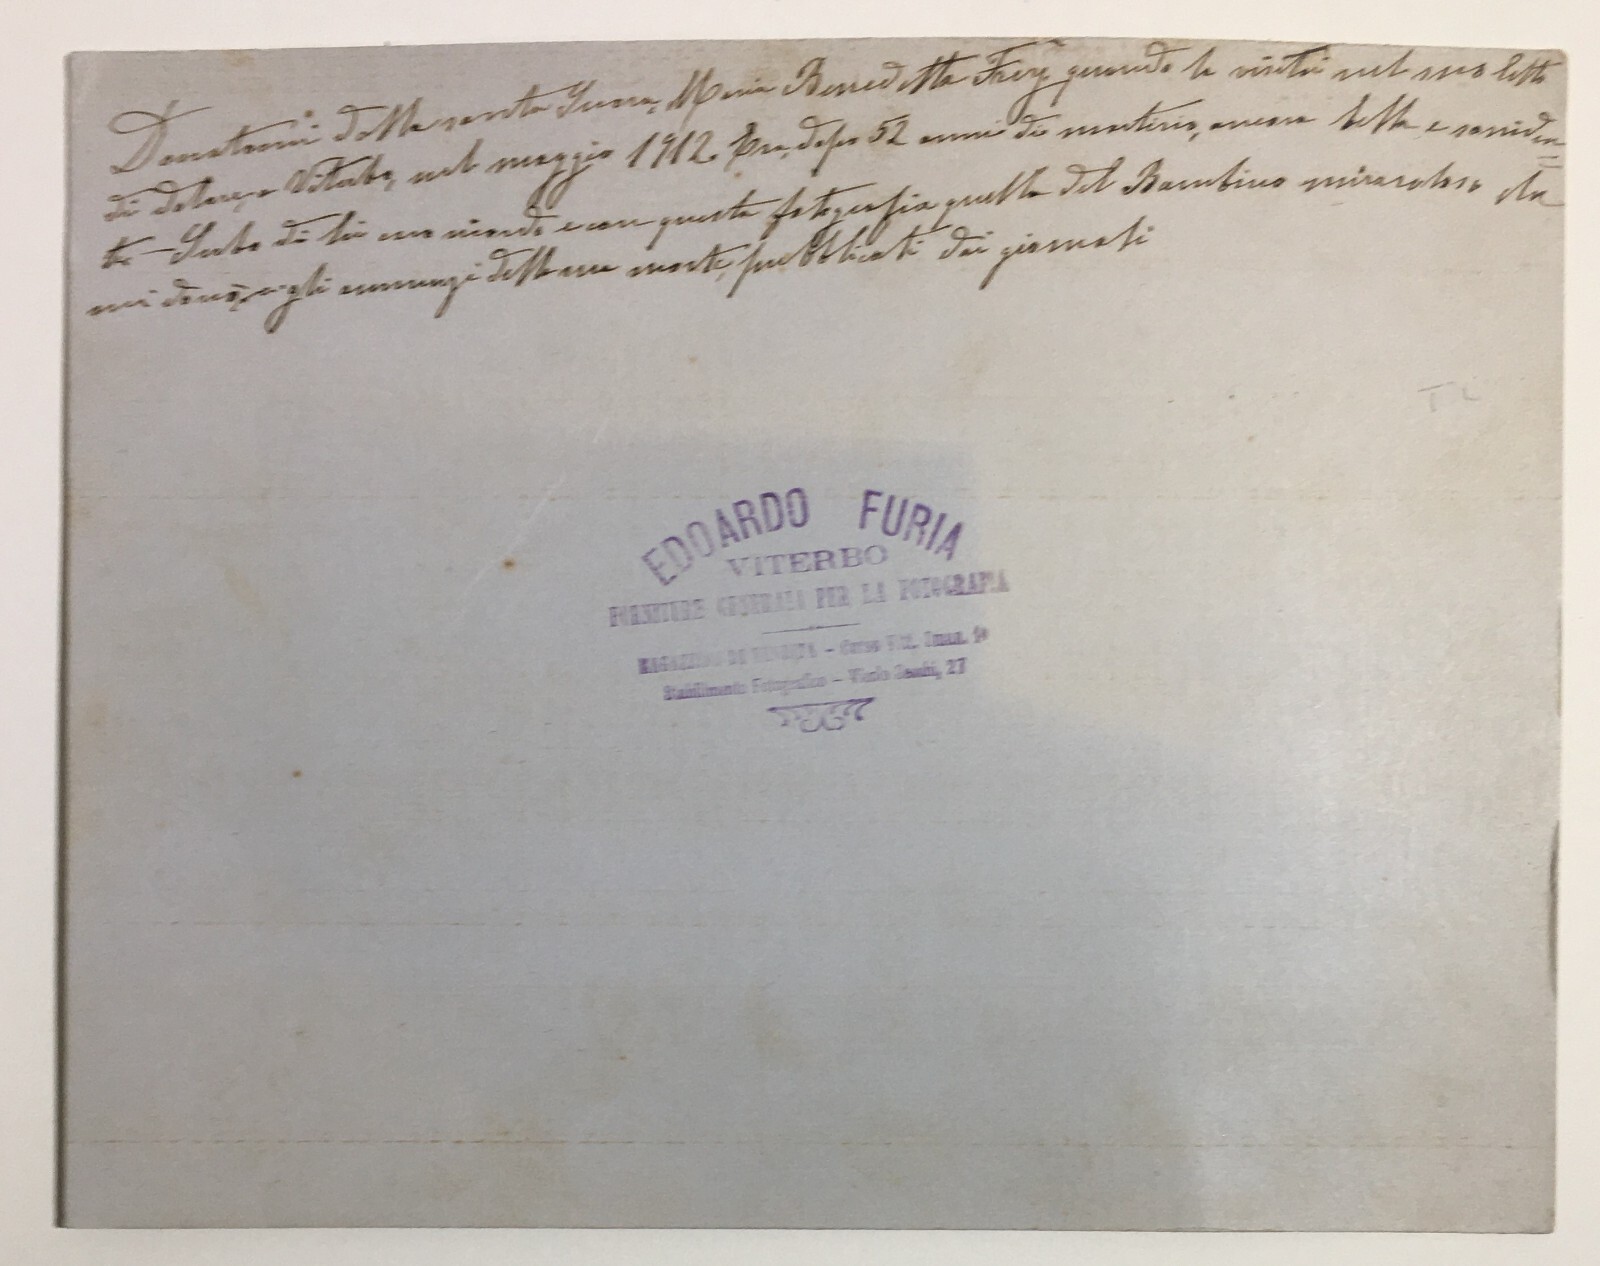 Donatami dalla santa Suora, Maria Benedetta Frey, quando la visitai nel suo letto
di dolore, a Viterbo, nel maggio 1912. Era, dopo 52 anni di martirio, ancora bella e sorriden=
te — Serbo di lei un ricordo e con questa fotografia quella del Bambino miracoloso che
mi donò, e gli annunzi della sua morte, pubblicati dai giornali
T L
EDOARDO FURIA
VITERBO
FORNITURE GENERALI PER LA FOTOGRAFIA
MAGAZZINO DI VENDITA - Corso Vitt. Eman.
Stabilimento Fotografico - Vicolo 27